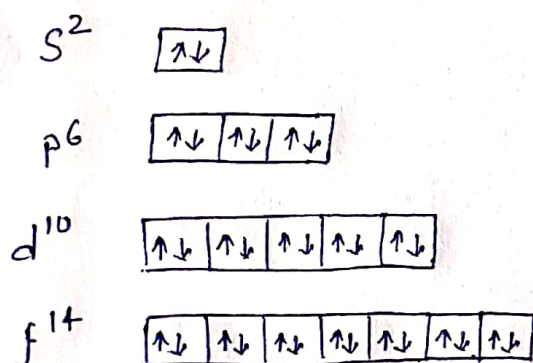 S² ↑↓
p⁶ ↑↓ ↑↓ ↑↓
d¹⁰ ↑↓ ↑↓ ↑↓ ↑↓ ↑↓
f¹⁴ ↑↓ ↑↓ ↑↓ ↑↓ ↑↓ ↑↓ ↑↓